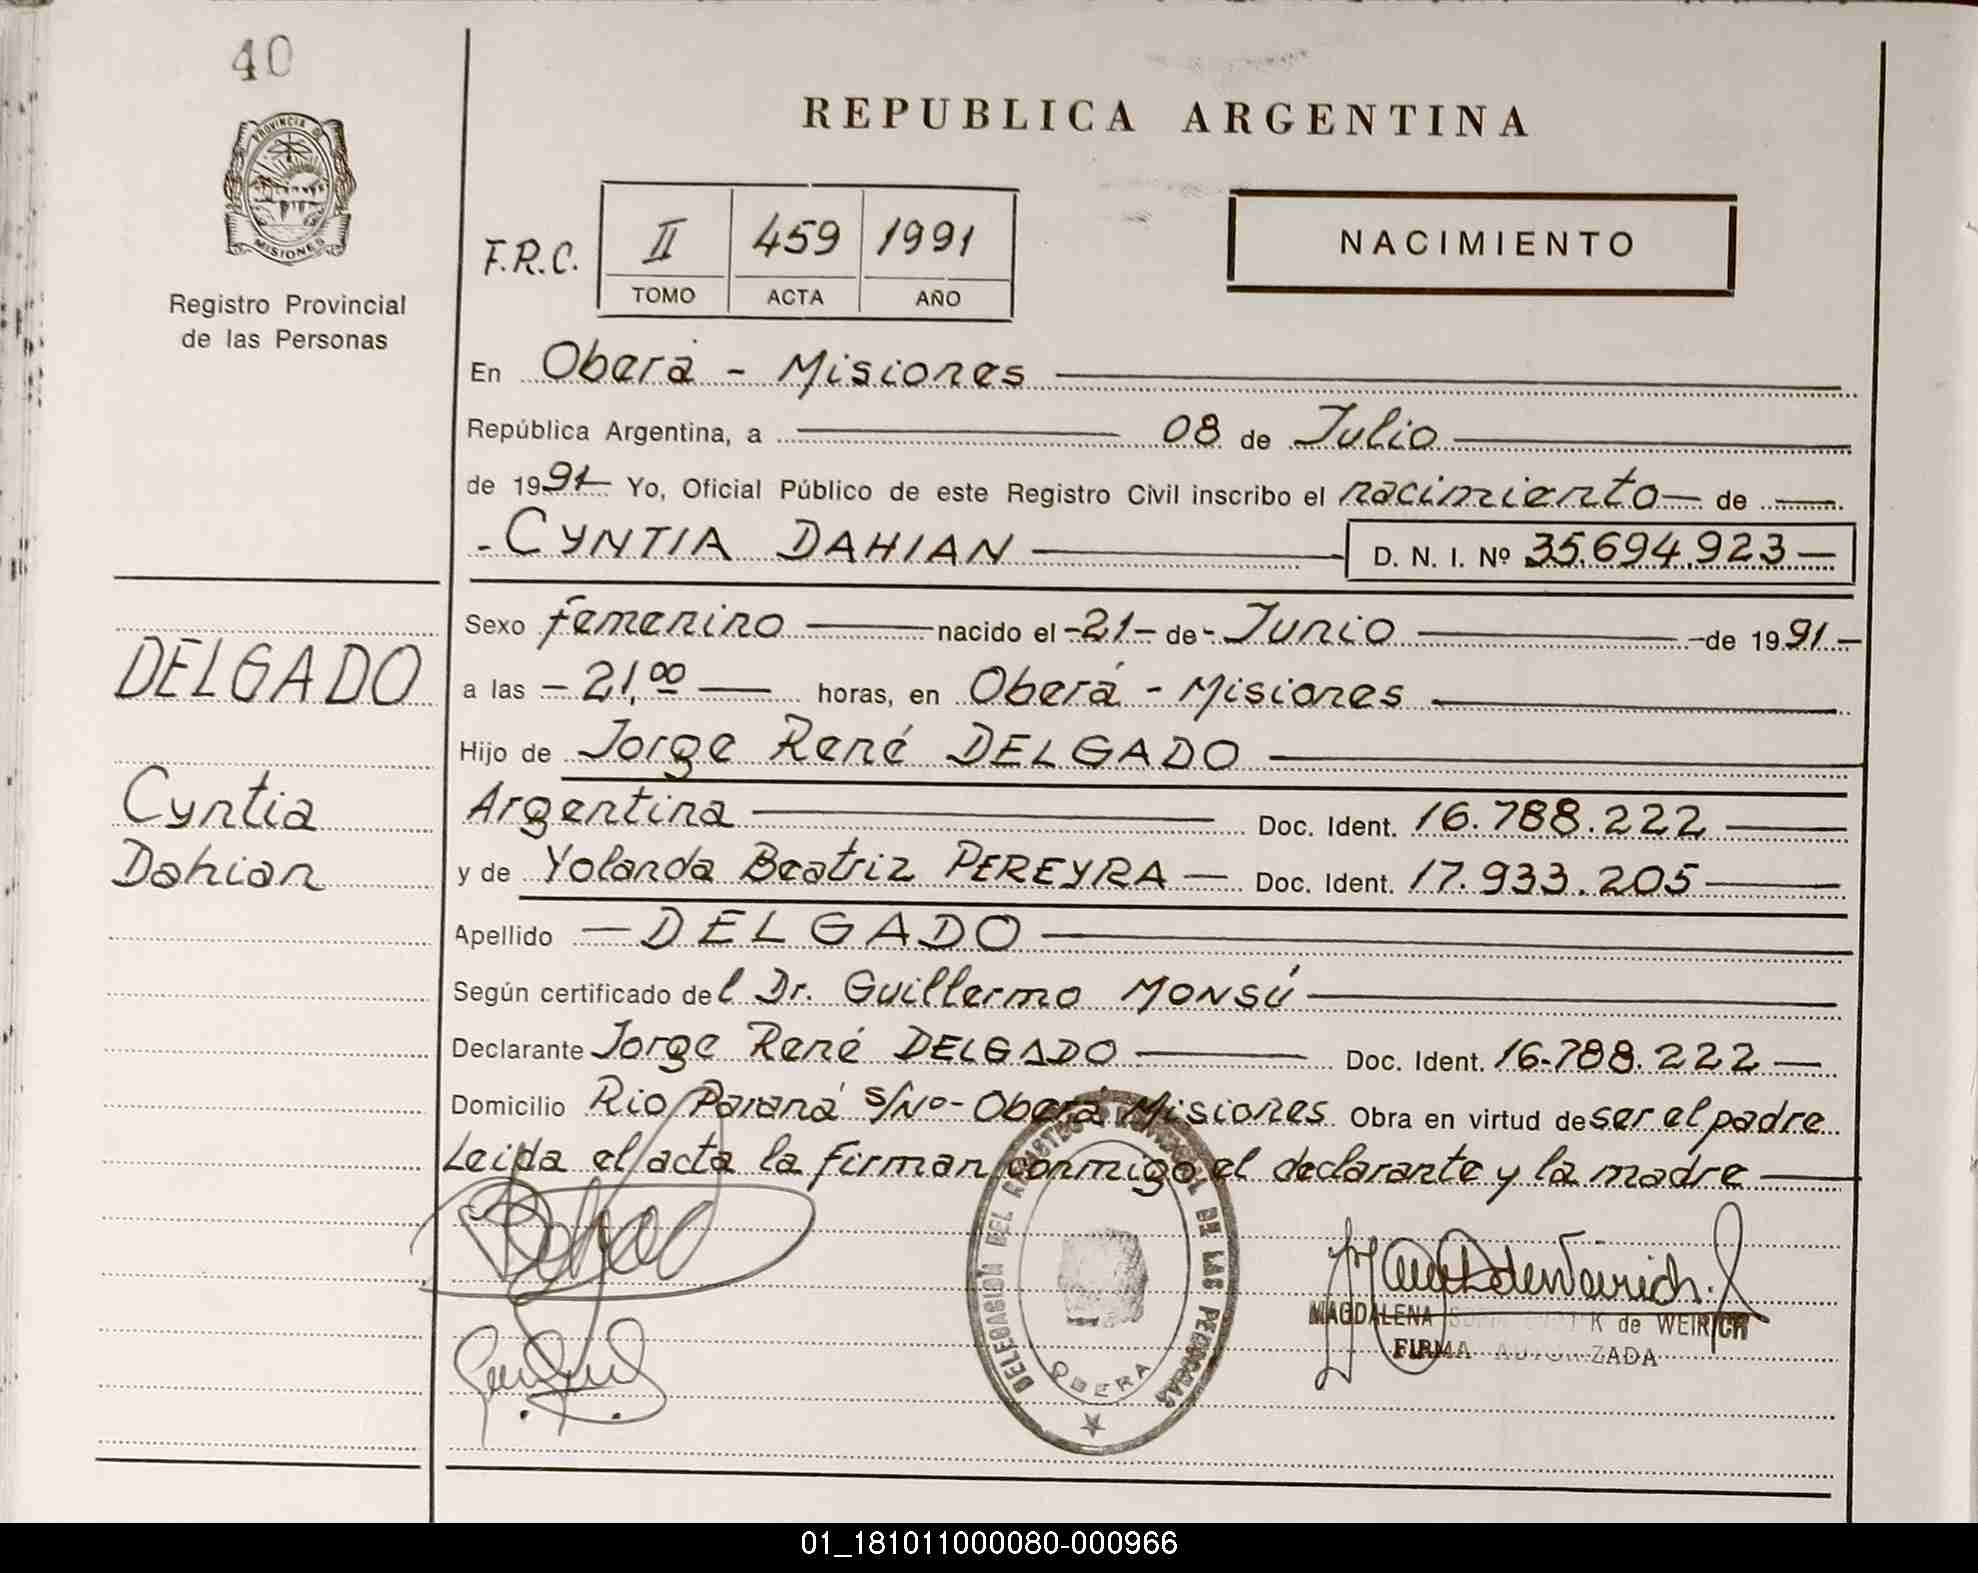 40
PROVINCIA DE
MISIONES
Registro Provincial
de las Personas
REPUBLICA ARGENTINA
F.R.C. II 459 1991
TOMO ACTA AÑO
NACIMIENTO
En Oberá - Misiones
República Argentina, a 08 de Julio
de 1991 Yo, Oficial Público de este Registro Civil inscribo el nacimiento de
- CYNTIA DAHIAN D. N. I. Nº 35.694.923
Sexo femenino nacido el -21- de - Junio de 1991-
a las - 21,00 horas, en Oberá - Misiones
Hijo de Jorge René DELGADO
Argentina Doc. Ident. 16.788.222
y de Yolanda Beatriz PEREYRA Doc. Ident. 17.933.205
Apellido DELGADO
Según certificado del Dr. Guillermo MONSÚ
Declarante Jorge René DELGADO Doc. Ident. 16.788.222
Domicilio Rio Paraná s/Nº - Oberá Misiones Obra en virtud de ser el padre
Leida el acta la firman conmigo el declarante y la madre
DELGADO
Cyntia
Dahian
DELEGACION DEL REGISTRO PROVINCIAL DE LAS PERSONAS
OBERA
MAGDALENA K de WEIRICH
FIRMA AUTORIZADA
01_181011000080-000966